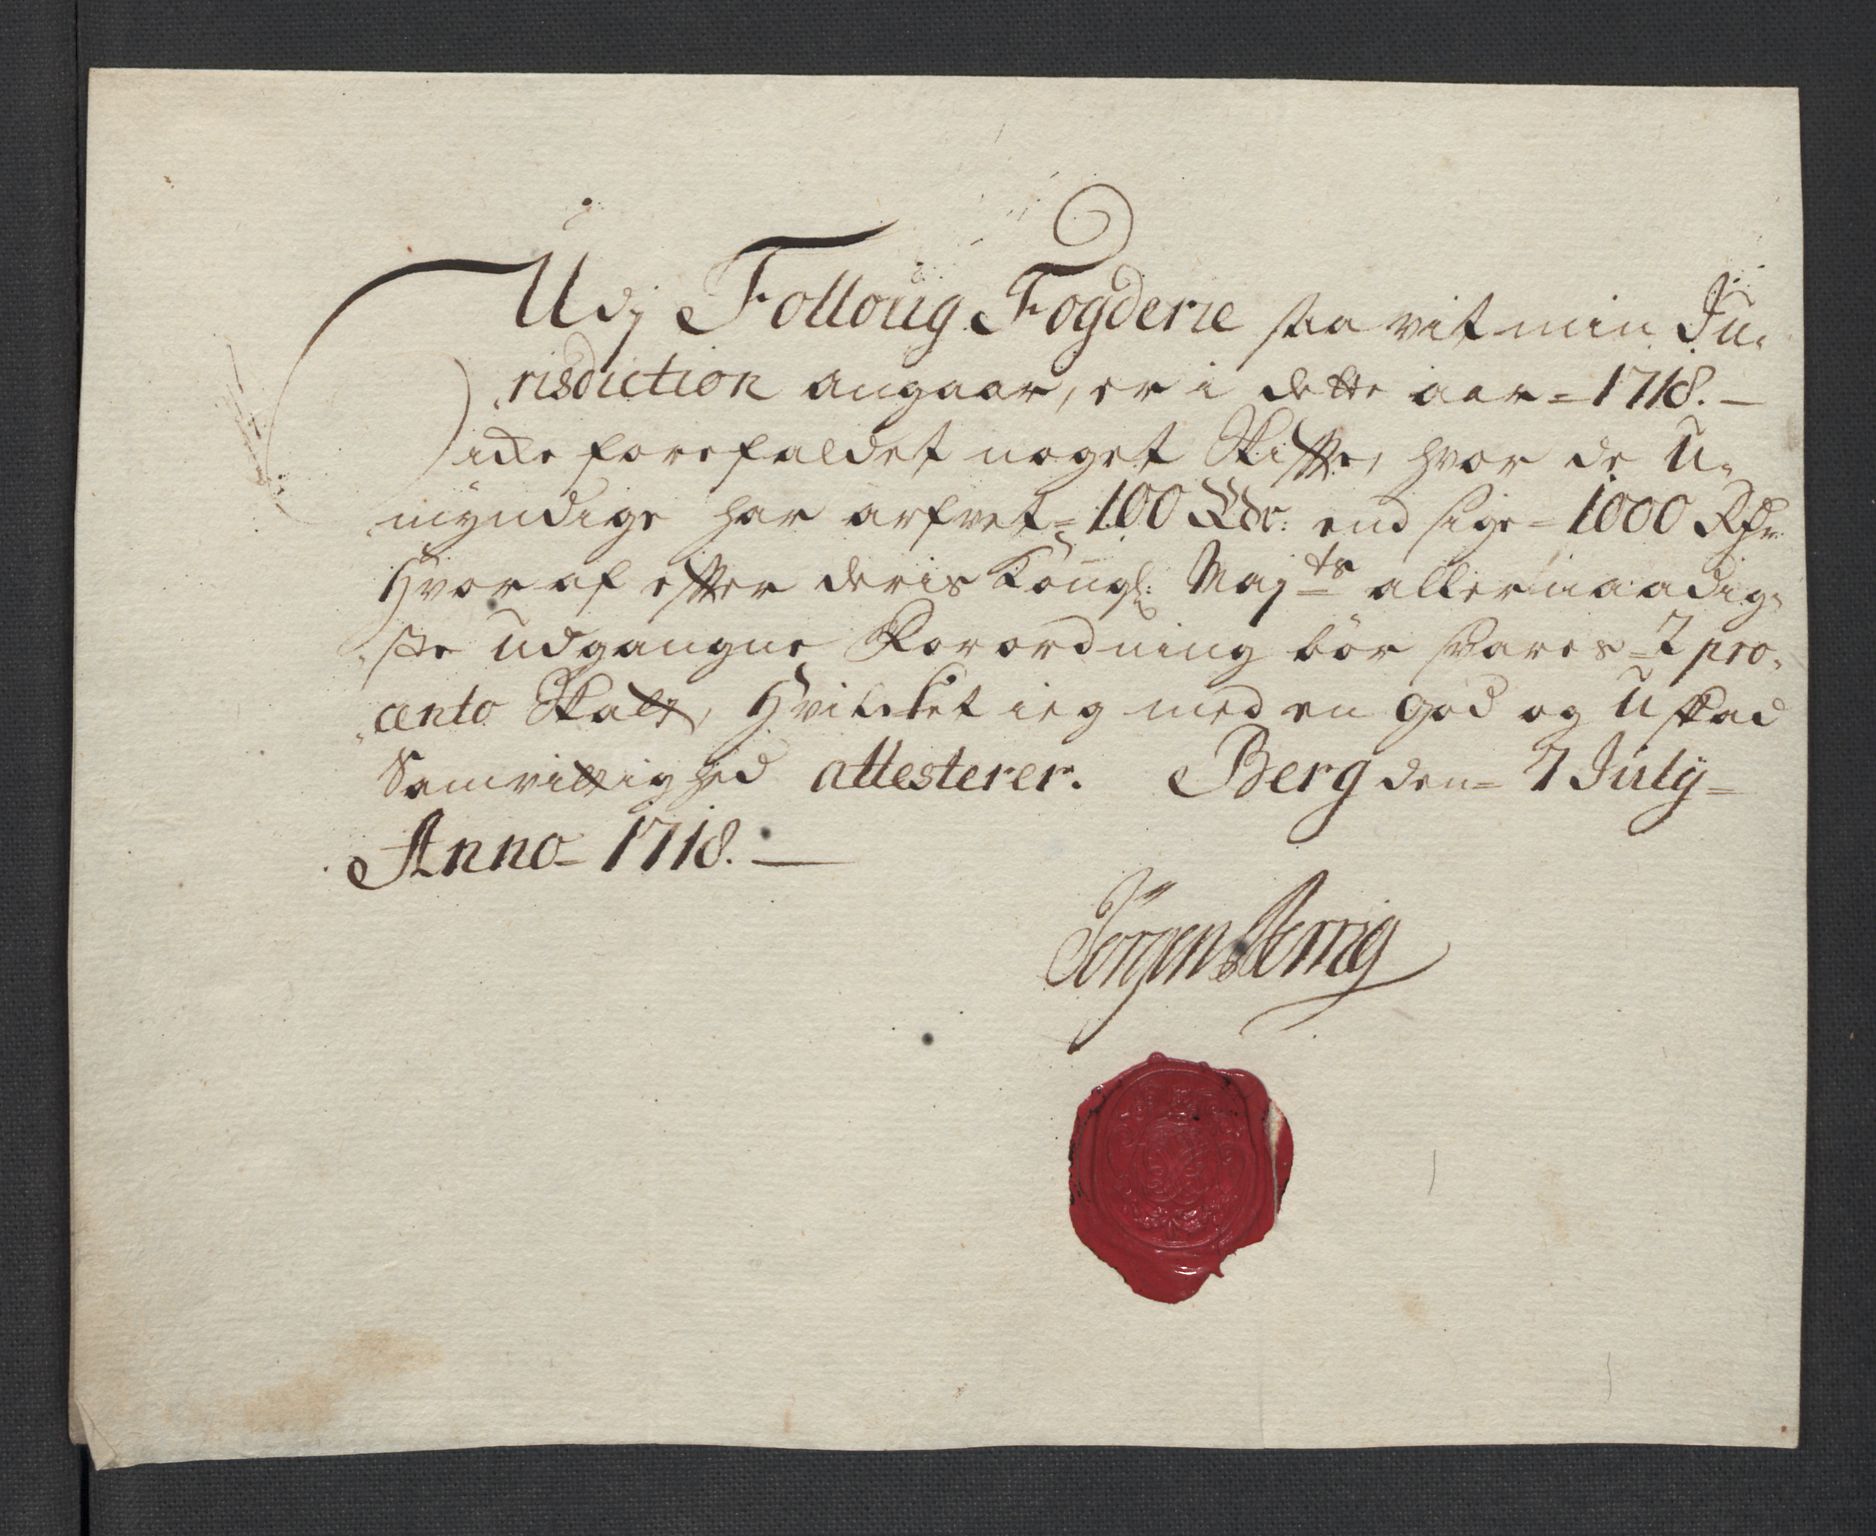 Udj Folloug Fogderie saa vit min Ju-
risdiction angaar, er i dette aar = 1718. —
icke forefaldet noget Skiffte, hvor de U-
myndige har arfvet = 100 Rdr: end sige = 1000 Rdr
Hvoraf effter deris Kongl: Majts allernaadig-
ste udgangne Forordning bör svares = 2 pro-
cento Skatt, Hvilcket ieg med en god og uskad
Samvittighed attesterer. Berg den = 7 July =
Anno = 1718. —
Jörgen